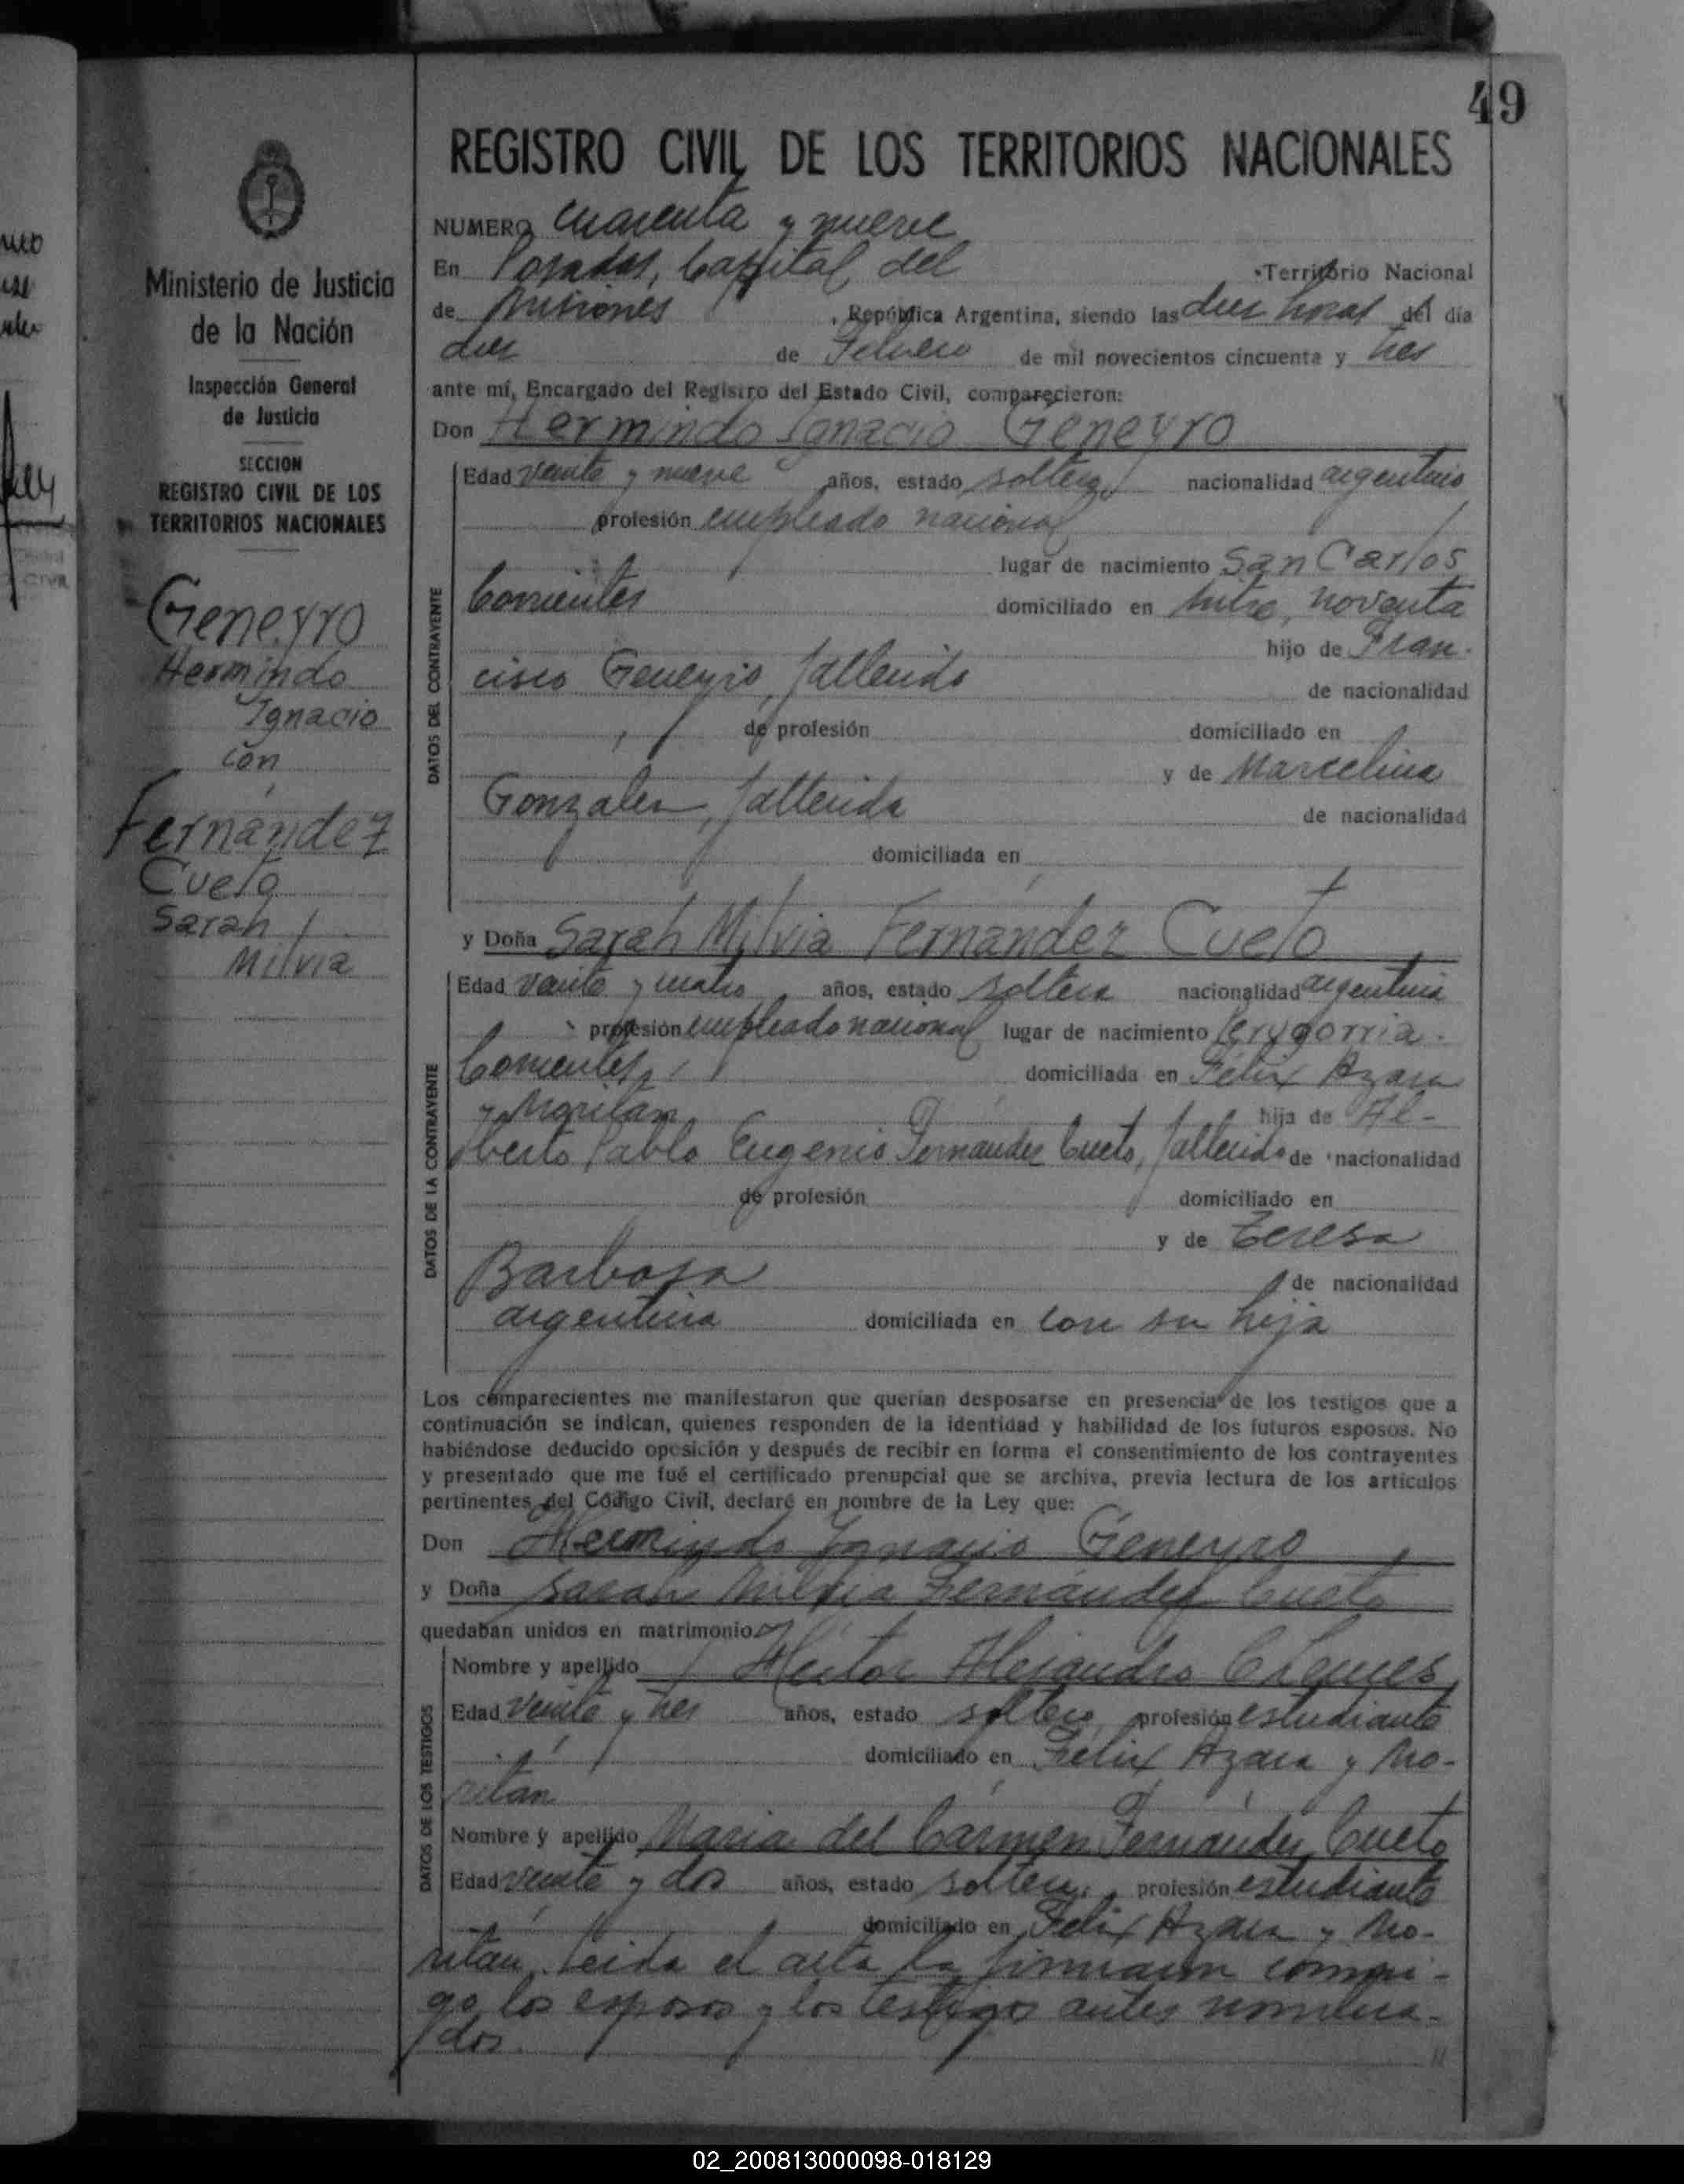 49
REGISTRO CIVIL DE LOS TERRITORIOS NACIONALES
NUMERO cuarenta y nueve
En Posadas, Capital del Territorio Nacional
de Misiones, República Argentina, siendo las diez horas del día
diez de Febrero de mil novecientos cincuenta y tres
ante mí, Encargado del Registro del Estado Civil, comparecieron:
Don Hermindo Ignacio Geneyro
Edad veinte y nueve años, estado soltero, nacionalidad argentino
profesión empleado nacional
lugar de nacimiento San Carlos
Corrientes domiciliado en Mitre, noventa
hijo de Fran-
cisco Geneyro, fallecido de nacionalidad
de profesión domiciliado en
y de Marcelina
Gonzalez, fallecida de nacionalidad
domiciliada en
y Doña Sarah Milvia Fernández Cueto
Edad veinte y cuatro años, estado soltera nacionalidad argentina
profesión empleado nacional lugar de nacimiento Perugorria.
Corrientes, domiciliada en Félix Azara
y Moritán hija de Al-
berto Pablo Eugenio Fernández Cueto, fallecido de nacionalidad
de profesión domiciliado en
y de Teresa
Barbosa de nacionalidad
argentina domiciliada en con su hija
Los comparecientes me manifestaron que querían desposarse en presencia de los testigos que a
continuación se indican, quienes responden de la identidad y habilidad de los futuros esposos. No
habiéndose deducido oposición y después de recibir en forma el consentimiento de los contrayentes
y presentado que me fué el certificado prenupcial que se archiva, previa lectura de los artículos
pertinentes del Código Civil, declaré en nombre de la Ley que:
Don Hermindo Ignacio Geneyro
y Doña Sarah Milvia Fernández Cueto
quedaban unidos en matrimonio.
Nombre y apellido Héctor Alejandro
Edad veinte y tres años, estado soltero, profesión estudiante
domiciliado en Félix Azara y Mo-
ritán
Nombre y apellido María del Carmen Fernández Cueto
Edad veinte y dos años, estado soltera, profesión estudiante
domiciliado en Félix Azara y Mo-
ritán. Leida el acta la firmaron conmi-
go los esposos y los testigos antes nombra-
dos.
DATOS DEL CONTRAYENTE
DATOS DE LA CONTRAYENTE
DATOS DE LOS TESTIGOS
Ministerio de Justicia
de la Nación
Inspección General
de Justicia
SECCION
REGISTRO CIVIL DE LOS
TERRITORIOS NACIONALES
Geneyro
Hermindo
Ignacio
con
Fernández
Cueto
Sarah
Milvia
02_200813000098-018129